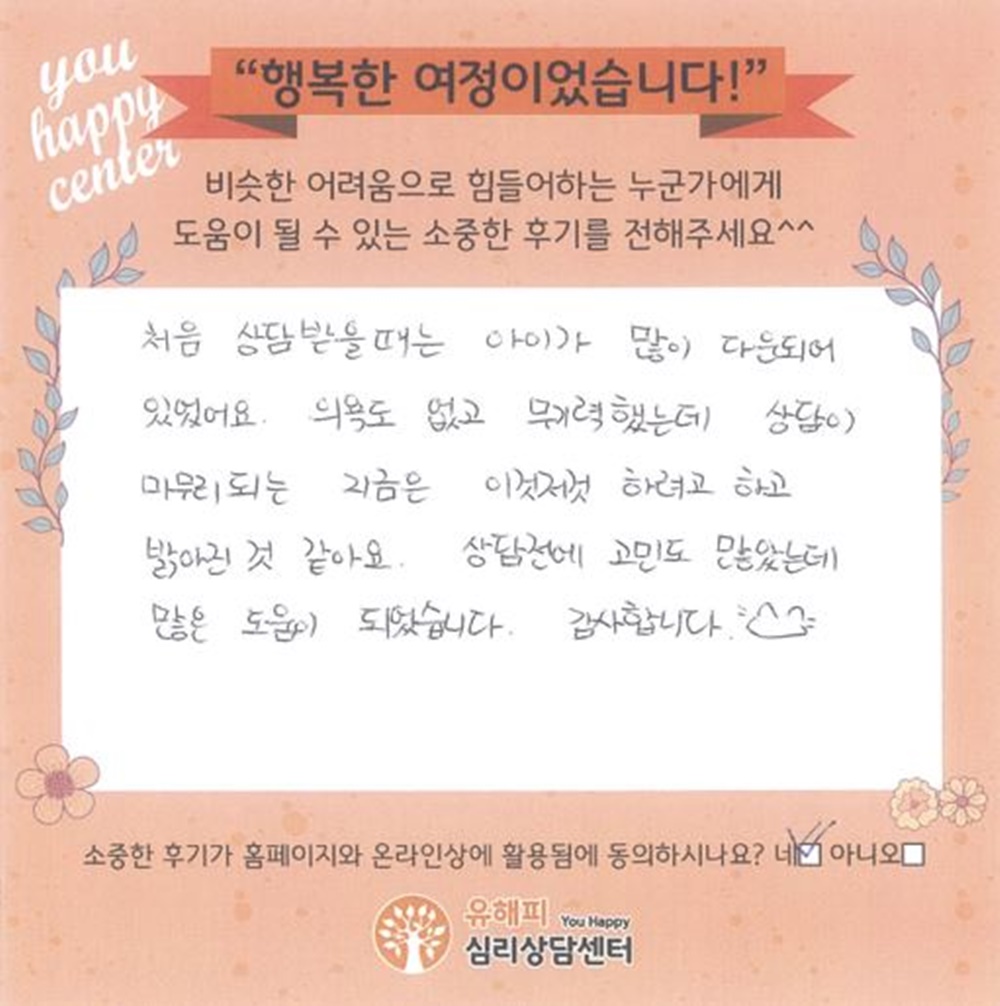 you
happy
center
“행복한 여정이었습니다!”
비슷한 어려움으로 힘들어하는 누군가에게
도움이 될 수 있는 소중한 후기를 전해주세요^^
처음 상담받을때는 아이가 많이 다운되어
있었어요. 의욕도 없고 무기력했는데 상담이
마무리되는 지금은 이것저것 하려고 하고
밝아진 것 같아요. 상담전에 고민도 많았는데
많은 도움이 되었습니다. 감사합니다.
소중한 후기가 홈페이지와 온라인상에 활용됨에 동의하시나요? 네☑ 아니오☐
유해피 You Happy
심리상담센터